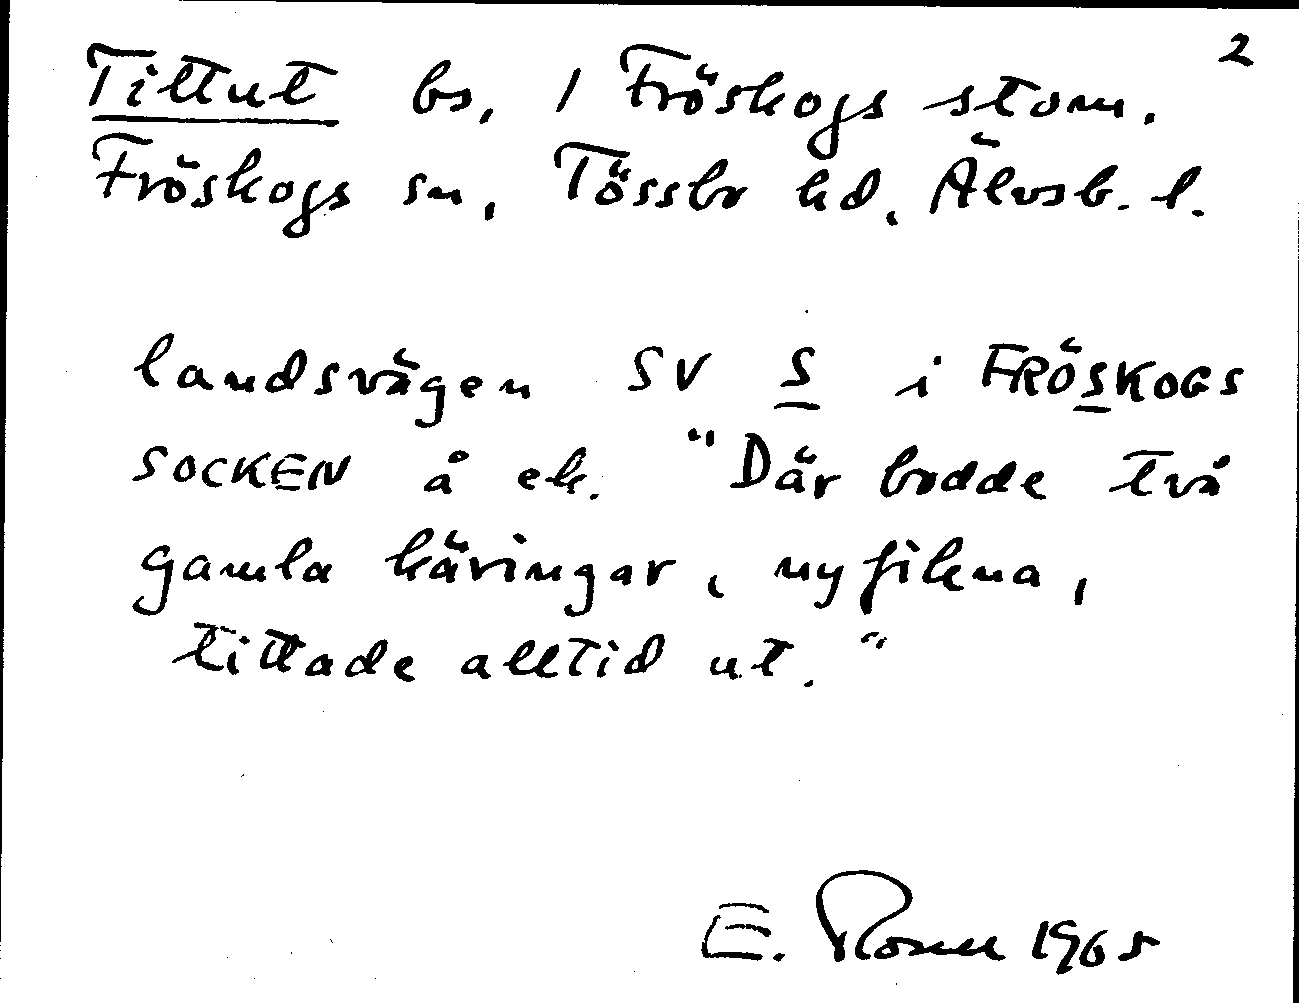 2
Tittut bs, / Fröskogs stom.
Fröskogs sn, Tössbo hd, Älvsb. l.
landsvägen SV S i FRÖSKOGS
SOCKEN å ek. "Där bodde två
gamla käringar, nyfikna,
tittade alltid ut."
E. 1965